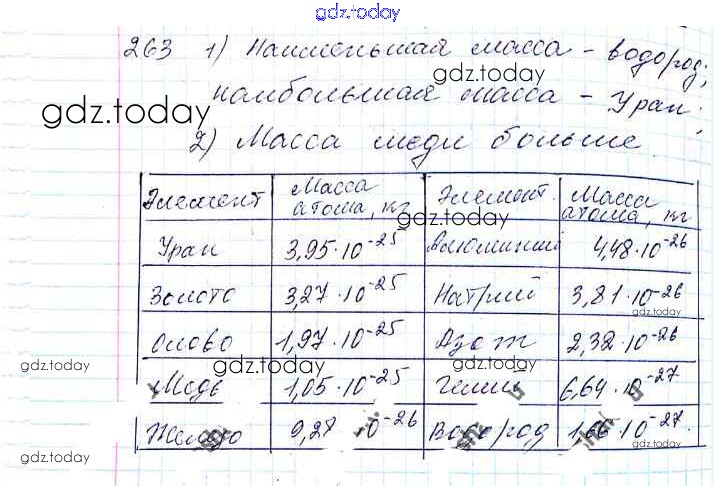 gdz.today
263 1) Наименьшая масса - водород;
gdz.today
наибольшая масса - Уран.
gdz.today
2) Масса меди больше
Элемент Масса атома, кг Элемент Масса атома, кг
gdz.today
Уран 3,95·10⁻²⁵ Алюминий 4,48·10⁻²⁶
Золото 3,27·10⁻²⁵ Натрий 3,81·10⁻²⁶
gdz.today
Олово 1,97·10⁻²⁵ Азот 2,32·10⁻²⁶
gdz.today gdz.today
Медь 1,05·10⁻²⁵ Гелий 6,64·10⁻²⁷
gdz.today
Железо 9,28·10⁻²⁶ Водород 1,66·10⁻²⁷
gdz.today
gdz.today